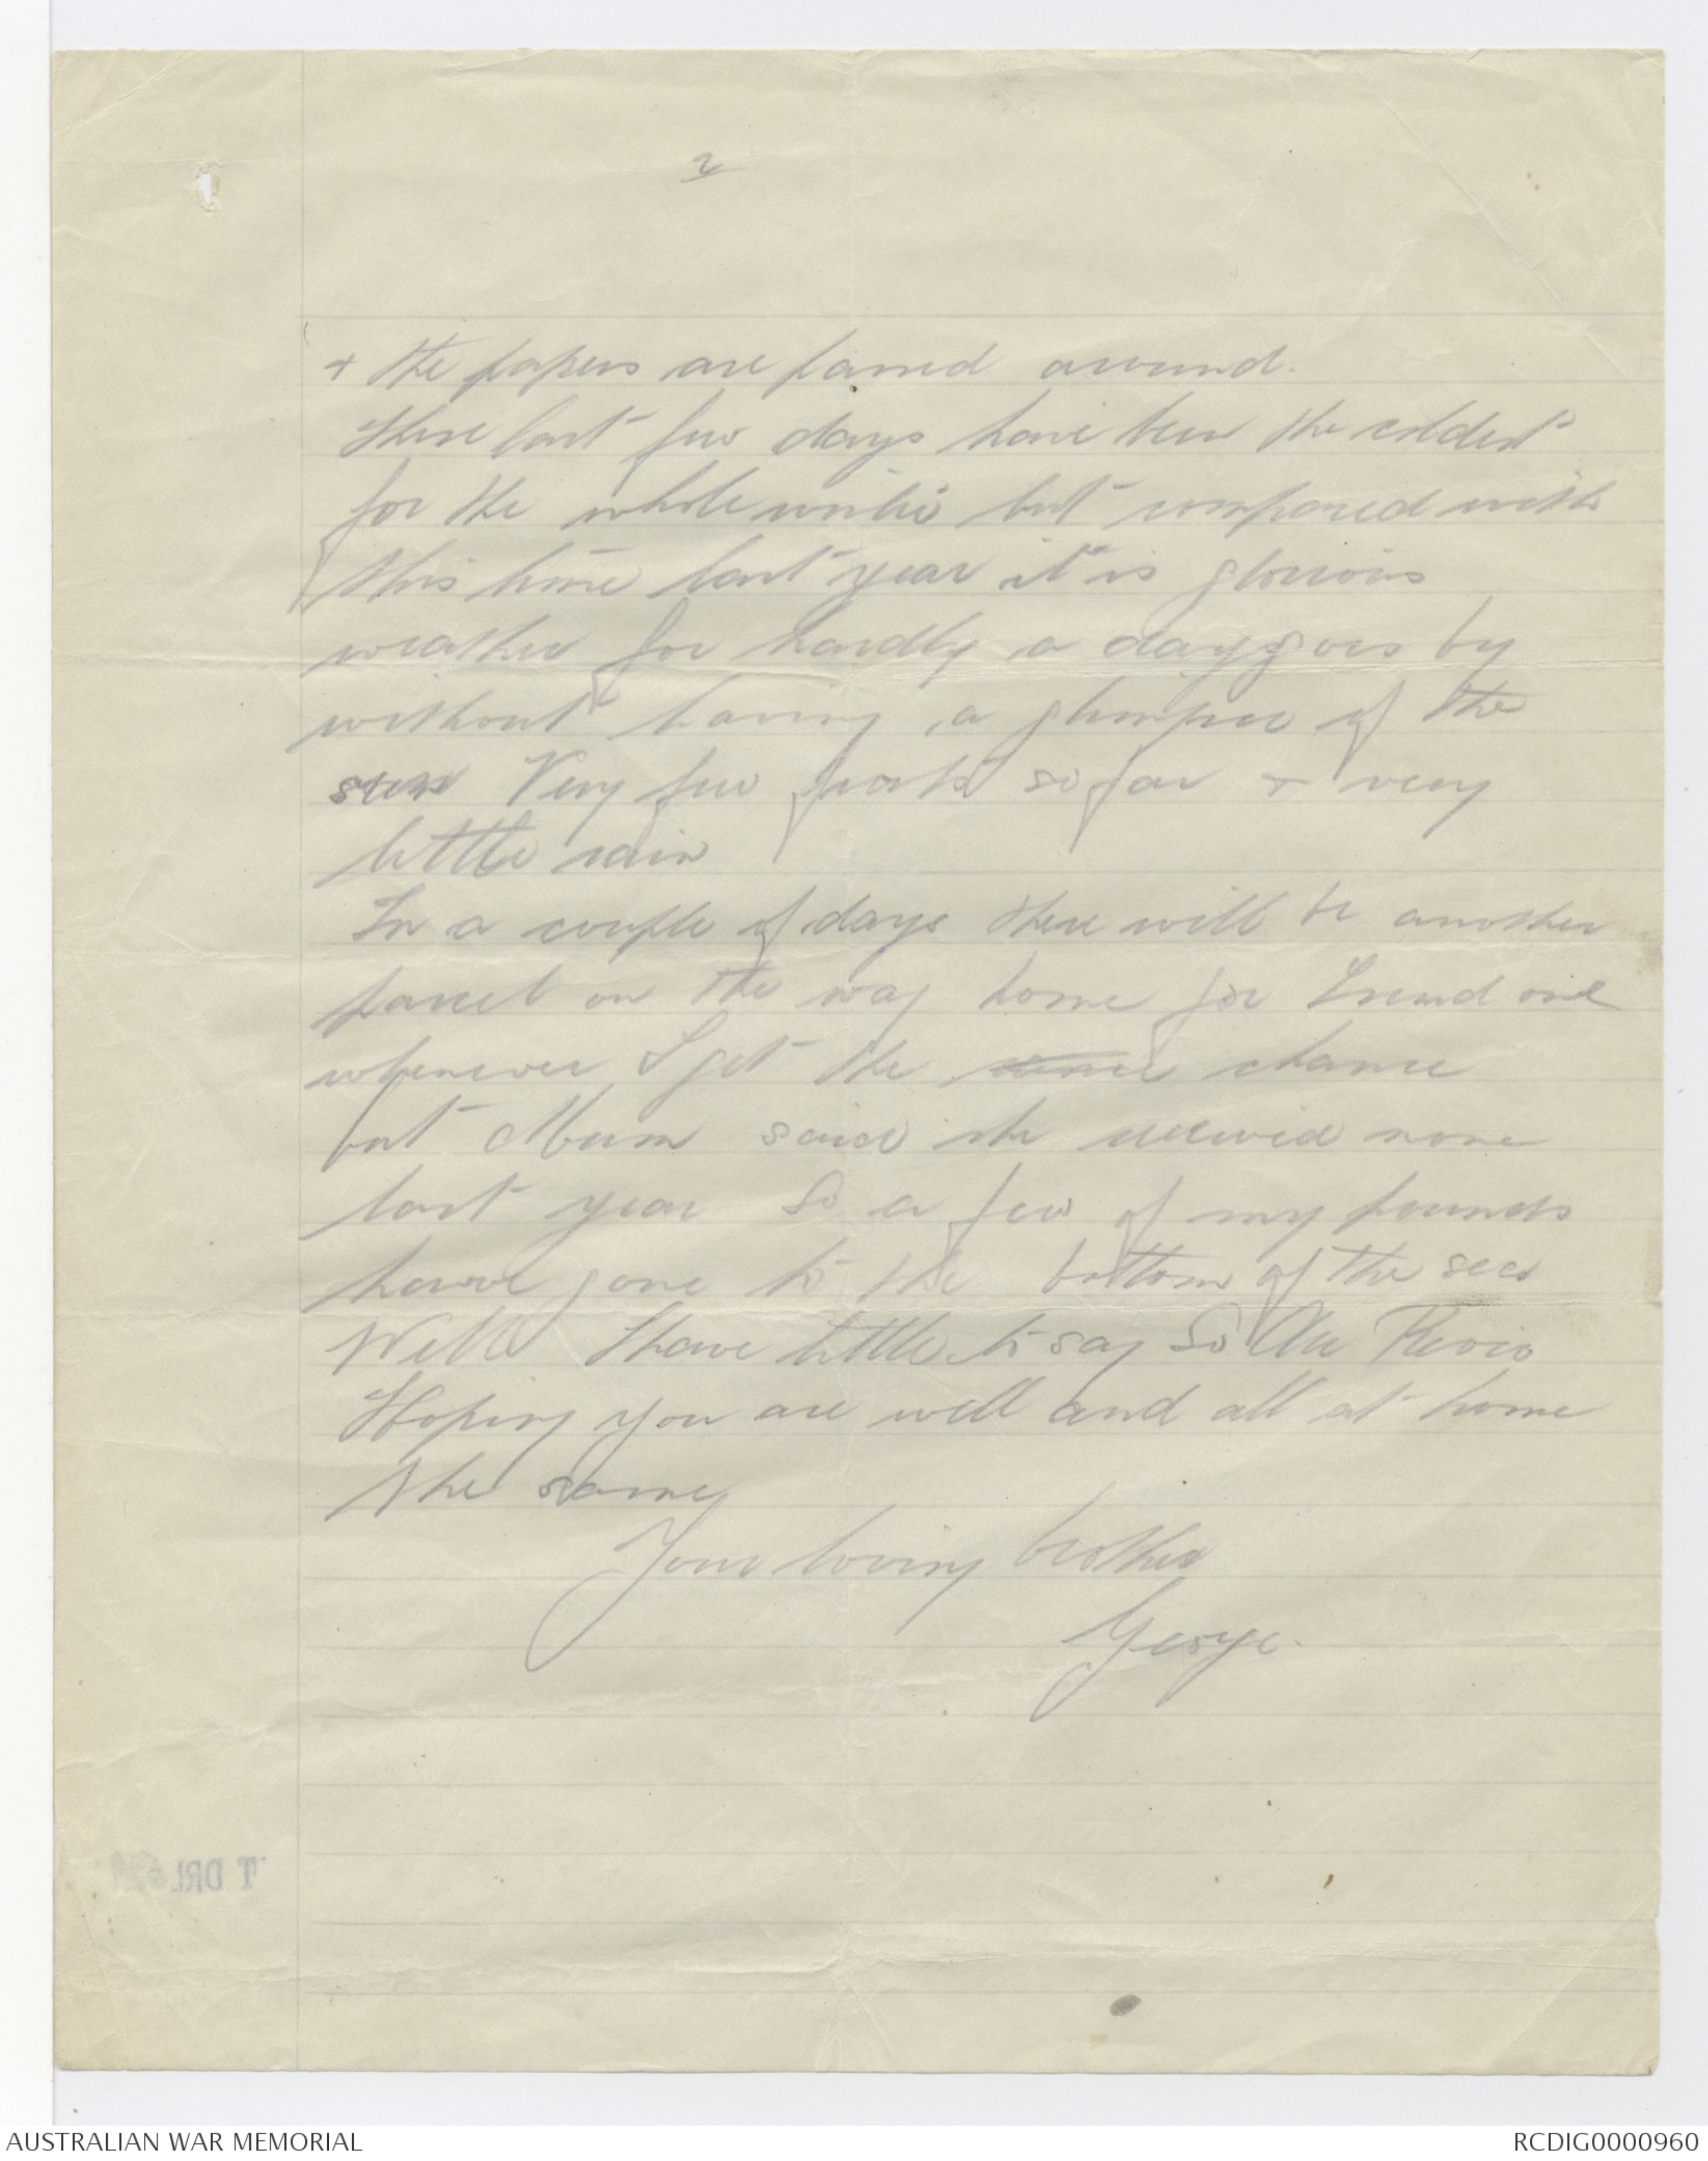 2
+ the papers are passed around.
These last few days have been the coldest
for the whole winter but compared with
this time last year it is glorious
weather for hardly a day goes by
without having a glimpse of the
sun Very few frosts so far + very
little rain
In a couple of days there will be another
parcel on the way home for I send one
whenever I get the chance
but Mum said she received none
last year So a few of my pounds
have gone to the bottom of the sea
Well I have little to say So Au Revoir
Hoping you are well and all at home
the same
Your loving brother
George.
T DRL
AUSTRALIAN WAR MEMORIAL
RCDIG0000960